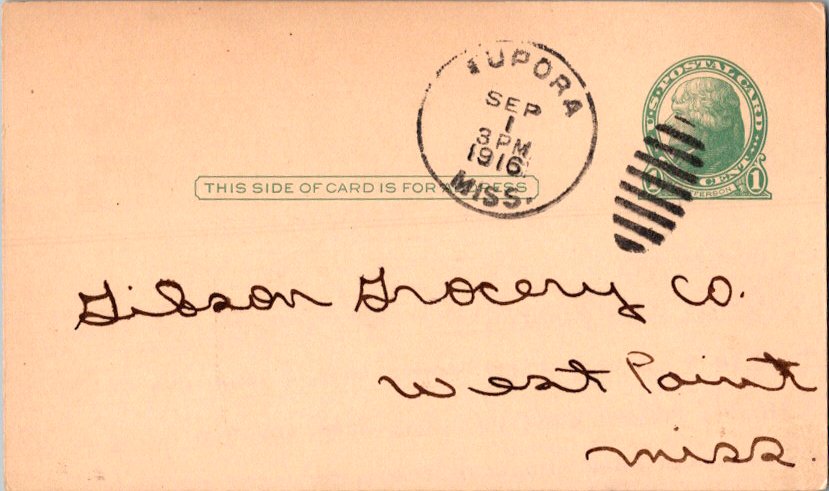 EUPORA
SEP
1
3 PM
1916
MISS.
U.S. POSTAL CARD
CENT 1
THIS SIDE OF CARD IS FOR ADDRESS
Gibson Grocery Co.
West Point
Miss.